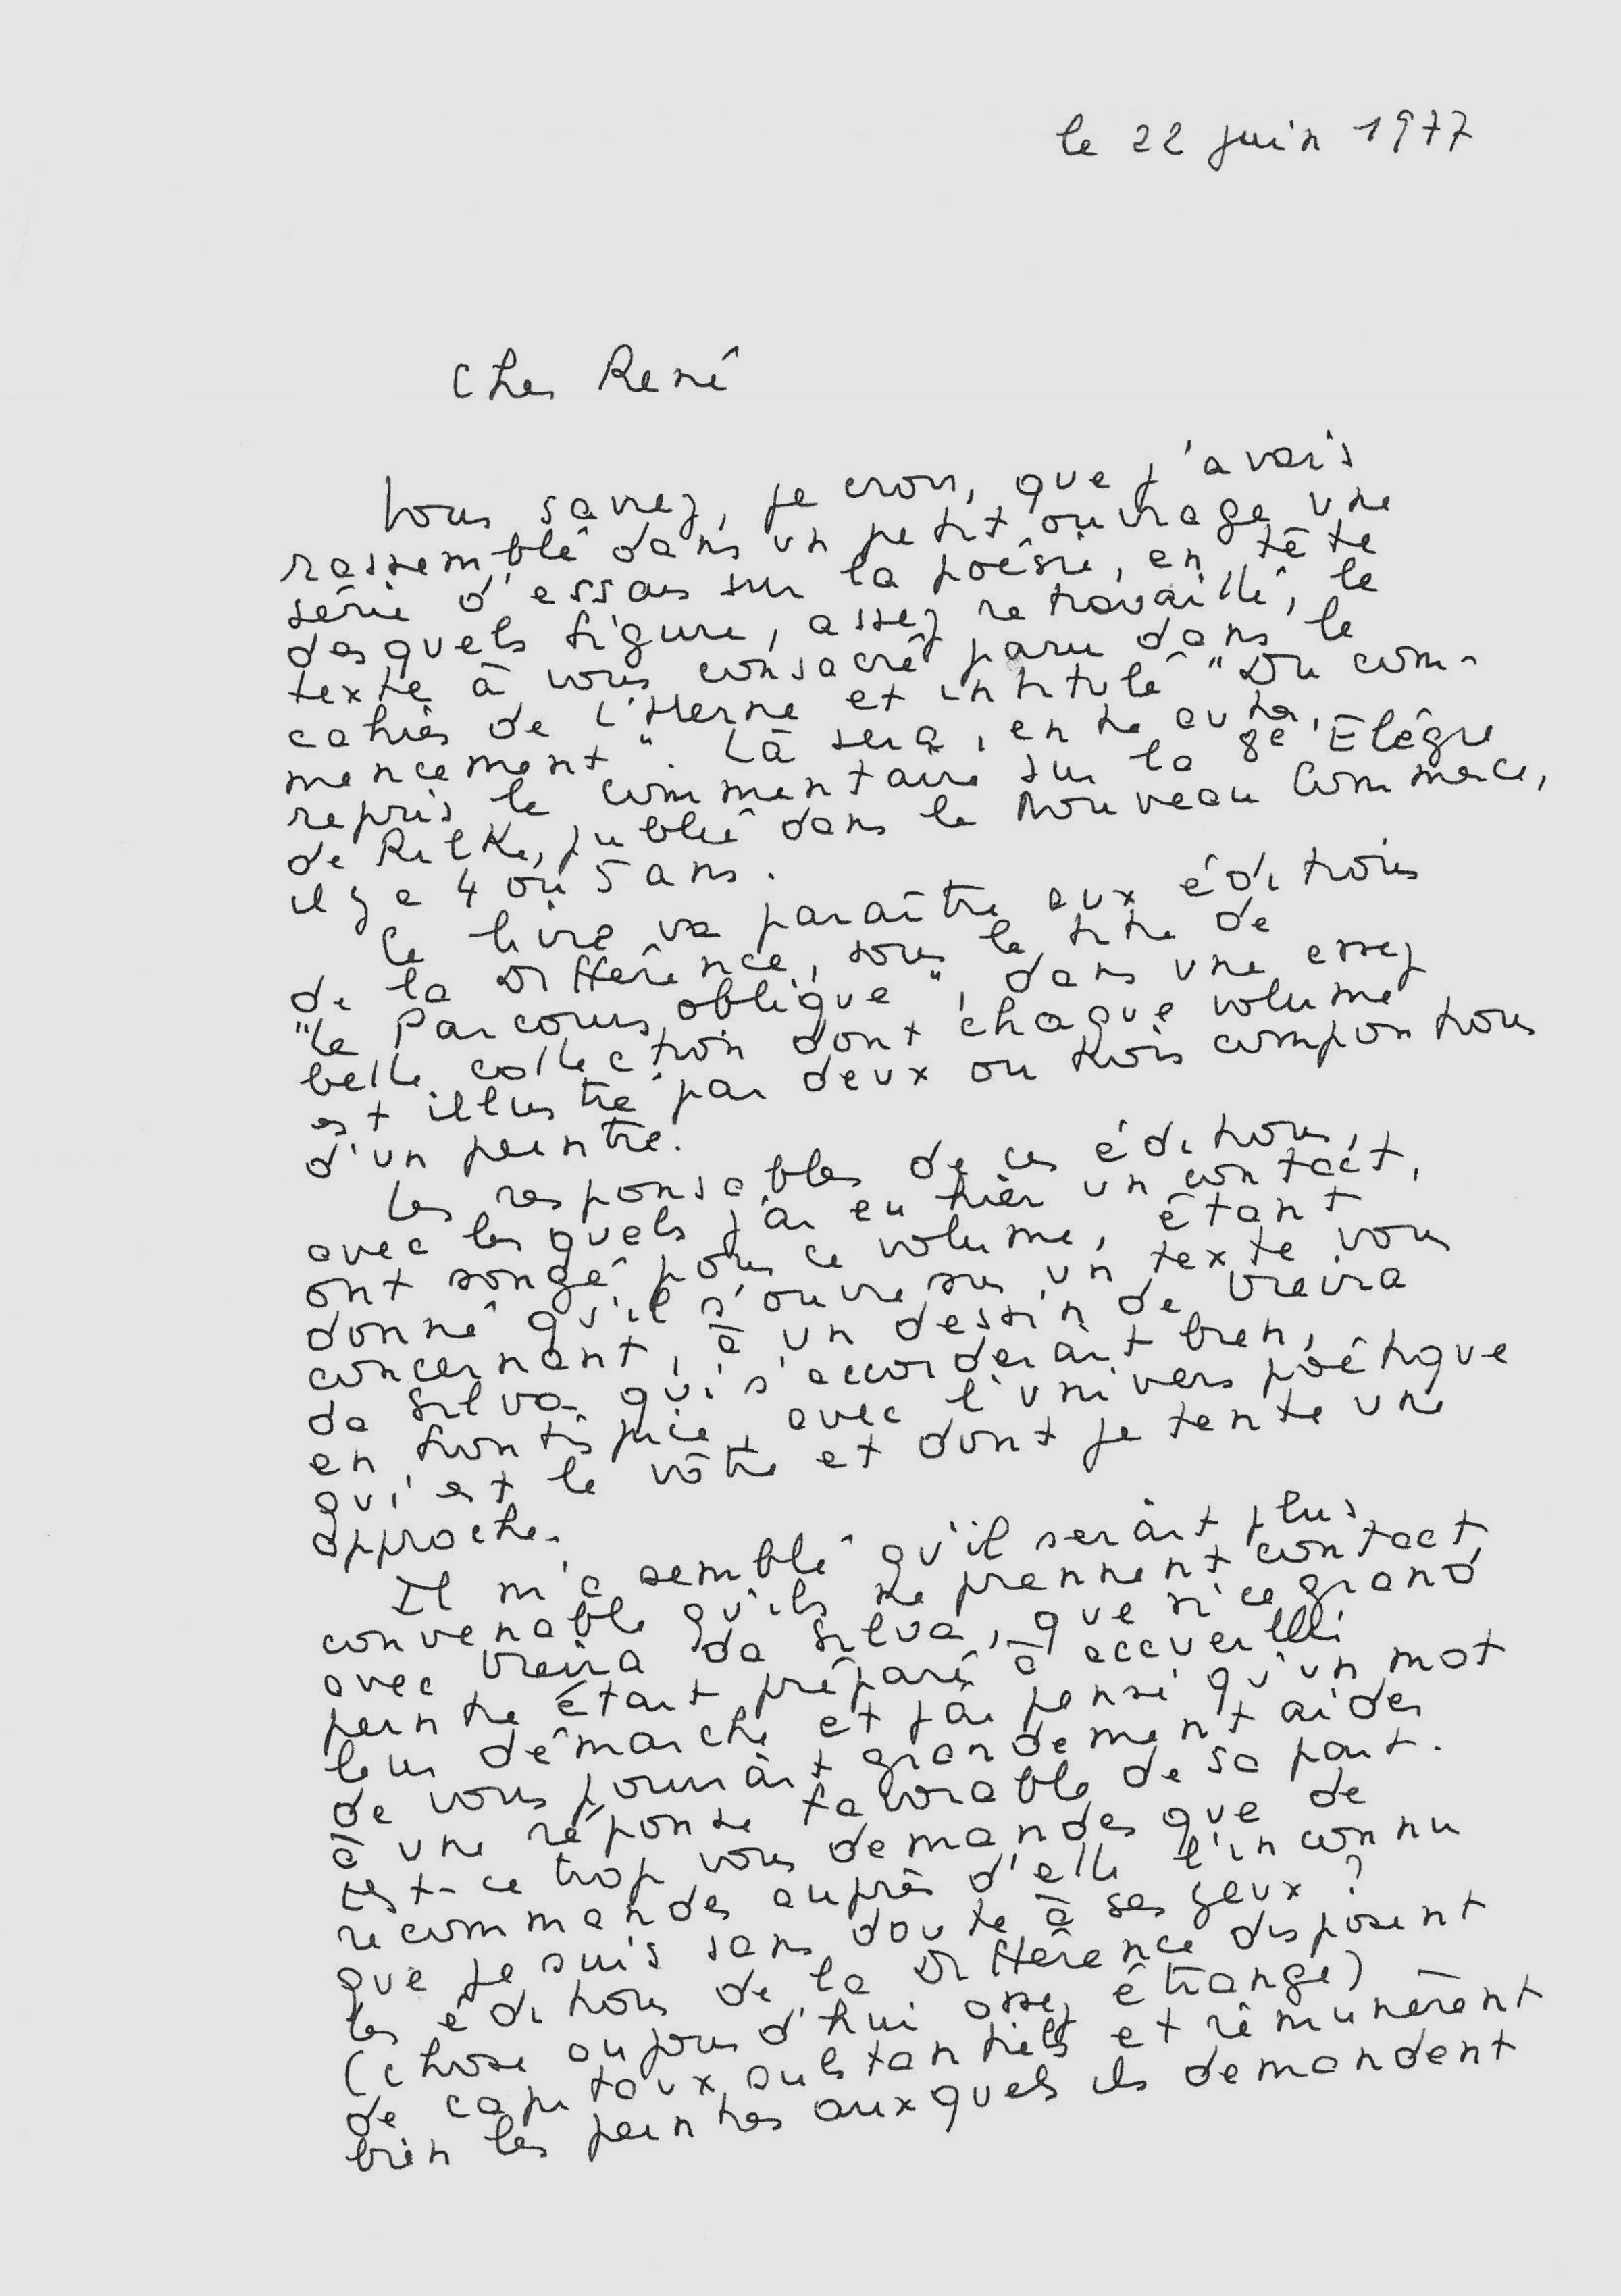 le 22 juin 1977
Cher René
Vous savez, je crois, que j'avais
rassemblé dans un petit ouvrage une
série d'essais sur la poésie, en tête
desquels figure, assez retravaillé, le
texte à vous consacré paru dans le
cahier de l'Herne et intitulé "Du com-
mencement". Là sera, entre autres,
repris le commentaire sur la 8e Elégie
de Rilke, publié dans le Nouveau Commerce,
il y a 4 ou 5 ans.
Ce livre va paraître aux éditions
de la Différence, sous le titre de
"Le Parcours oblique", dans une assez
belle collection dont chaque volume
est illustré par deux ou trois compositions
d'un peintre.
Les responsables de ces éditions,
avec lesquels j'ai eu hier un contact,
ont songé pour ce volume, étant
donné qu'il s'ouvre sur un texte vous
concernant, à un dessin de Vieira
da Silva qui s'accorderait bien,
en frontispice, avec l'univers poétique
qui est le vôtre et dont je tente une
approche.
Il m'a semblé qu'il serait plus
convenable qu'ils ne prennent contact
avec Vieira da Silva, que si ce grand
peintre était préparé à accueillir
leur démarche et j'ai pensé qu'un mot
de vous pourrait grandement aider
à une réponse favorable de sa part.
Est-ce trop vous demander que de
recommander auprès d'elle l'inconnu
que je suis sans doute à ses yeux ?
Les éditions de la Différence disposent
(chose aujourd'hui assez étrange)
de capitaux substantiels et rémunèrent
bien les peintres auxquels ils demandent